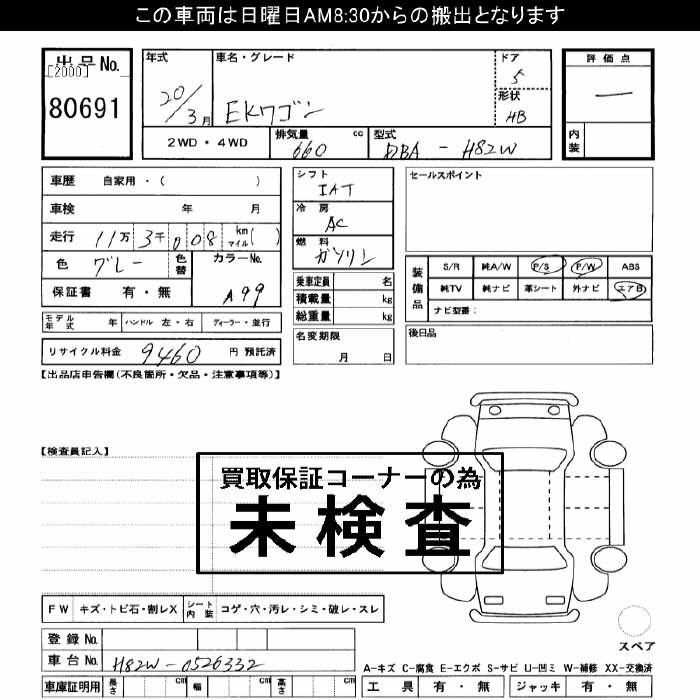 この車両は日曜日AM8:30からの搬出となります
出品No.
[2000]
80691
年式
20/3月
車名・グレード
EKワゴン
ドア
5
形状
HB
2WD・4WD
排気量
660 cc
型式
DBA - H82W
評価点
内装
車歴 自家用・( )
車検 年 月
走行 11万3千008 km マイル( )
色 グレー 色替 カラーNo.
A99
保証書 有・無
モデル年式 年 ハンドル 左・右 ディーラー・並行
リサイクル料金 9460 円 預託済
シフト
IAT
冷房
AC
燃料
ガソリン
乗車定員 名
積載量 kg
総重量 kg
名変期限
月 日
セールスポイント
装備品
S/R 純A/W P/S P/W ABS
純TV 純ナビ 革シート 外ナビ エアB
ナビ型番:
後日品
【出品店申告欄(不良箇所・欠品・注意事項等)】
【検査員記入】
買取保証コーナーの為
未検査
FW キズ・トビ石・割レX シート内装 コゲ・穴・汚レ・シミ・破レ・スレ
登録No.
車台No. H82W-0526332
車庫証明用 長さ cm 幅 cm 高さ cm
スペア
A-キズ C-腐食 E-エクボ S-サビ U-凹ミ W-補修 XX-交換済
工具 有・無 ジャッキ 有・無